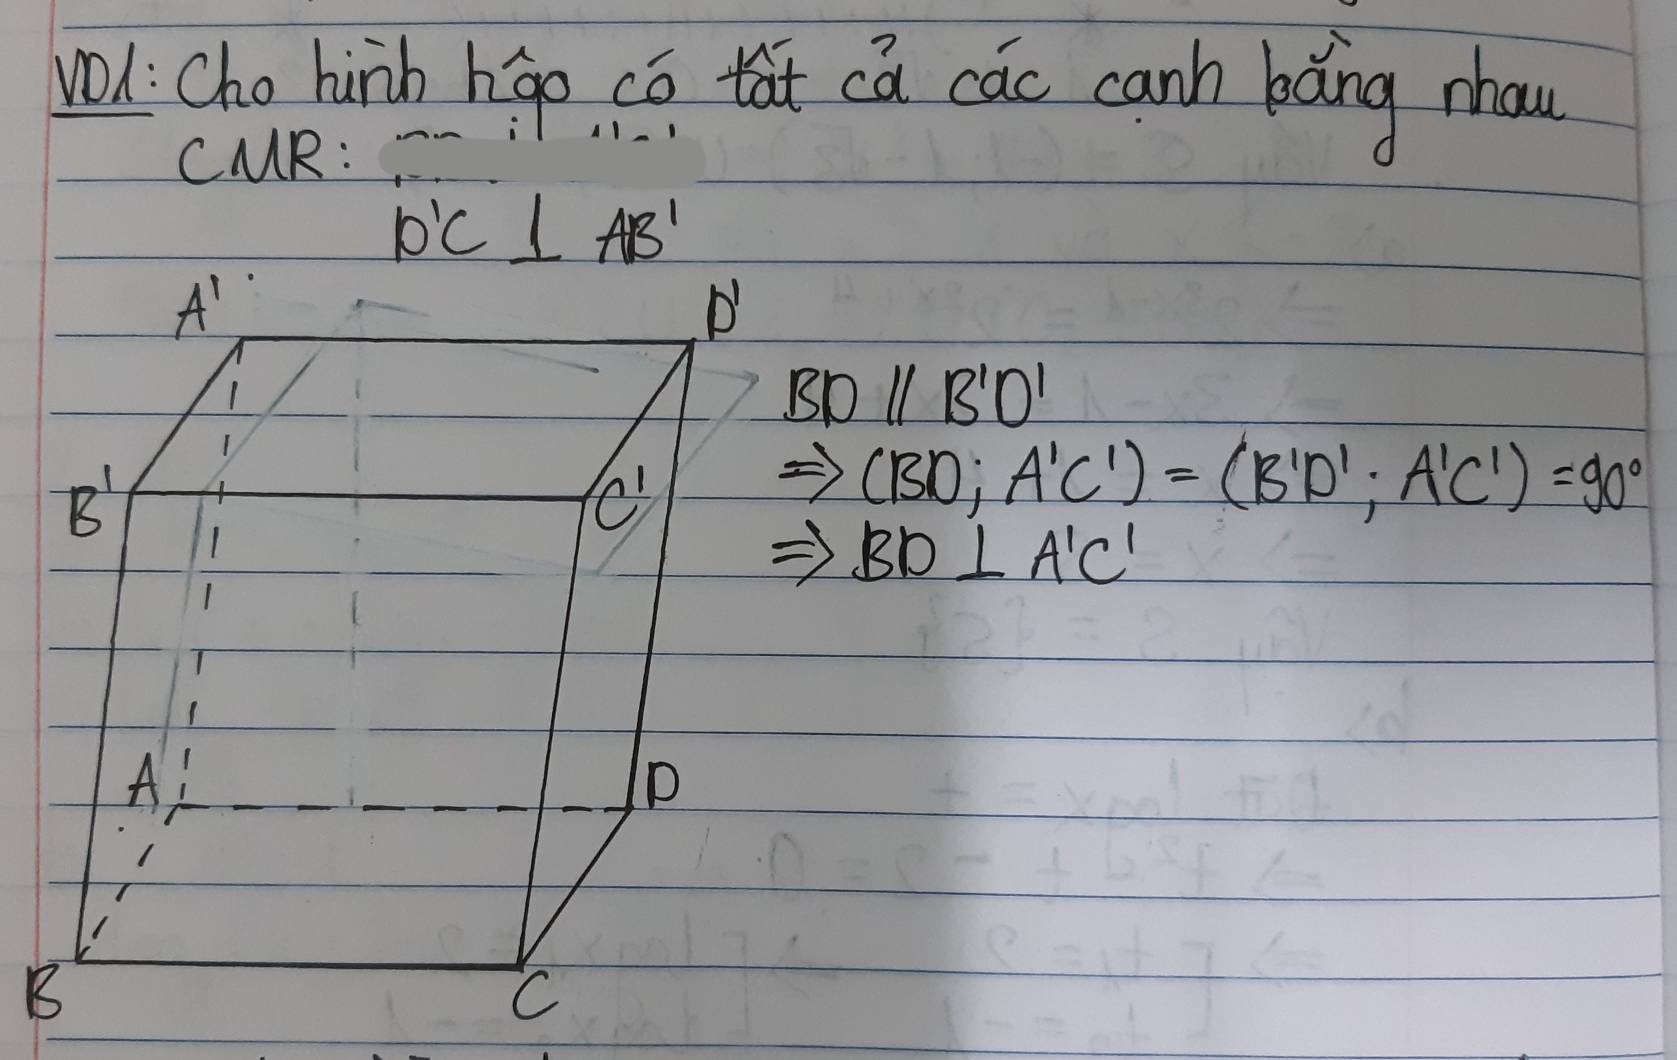 VD1: Cho hình hộp có tất cả các cạnh bằng nhau
CMR:
D'C ⊥ AB'
A'
D'
BD // B'D'
B'
C'
⇒ (BD; A'C') = (B'D'; A'C') = 90°
⇒ BD ⊥ A'C'
A
D
B
C